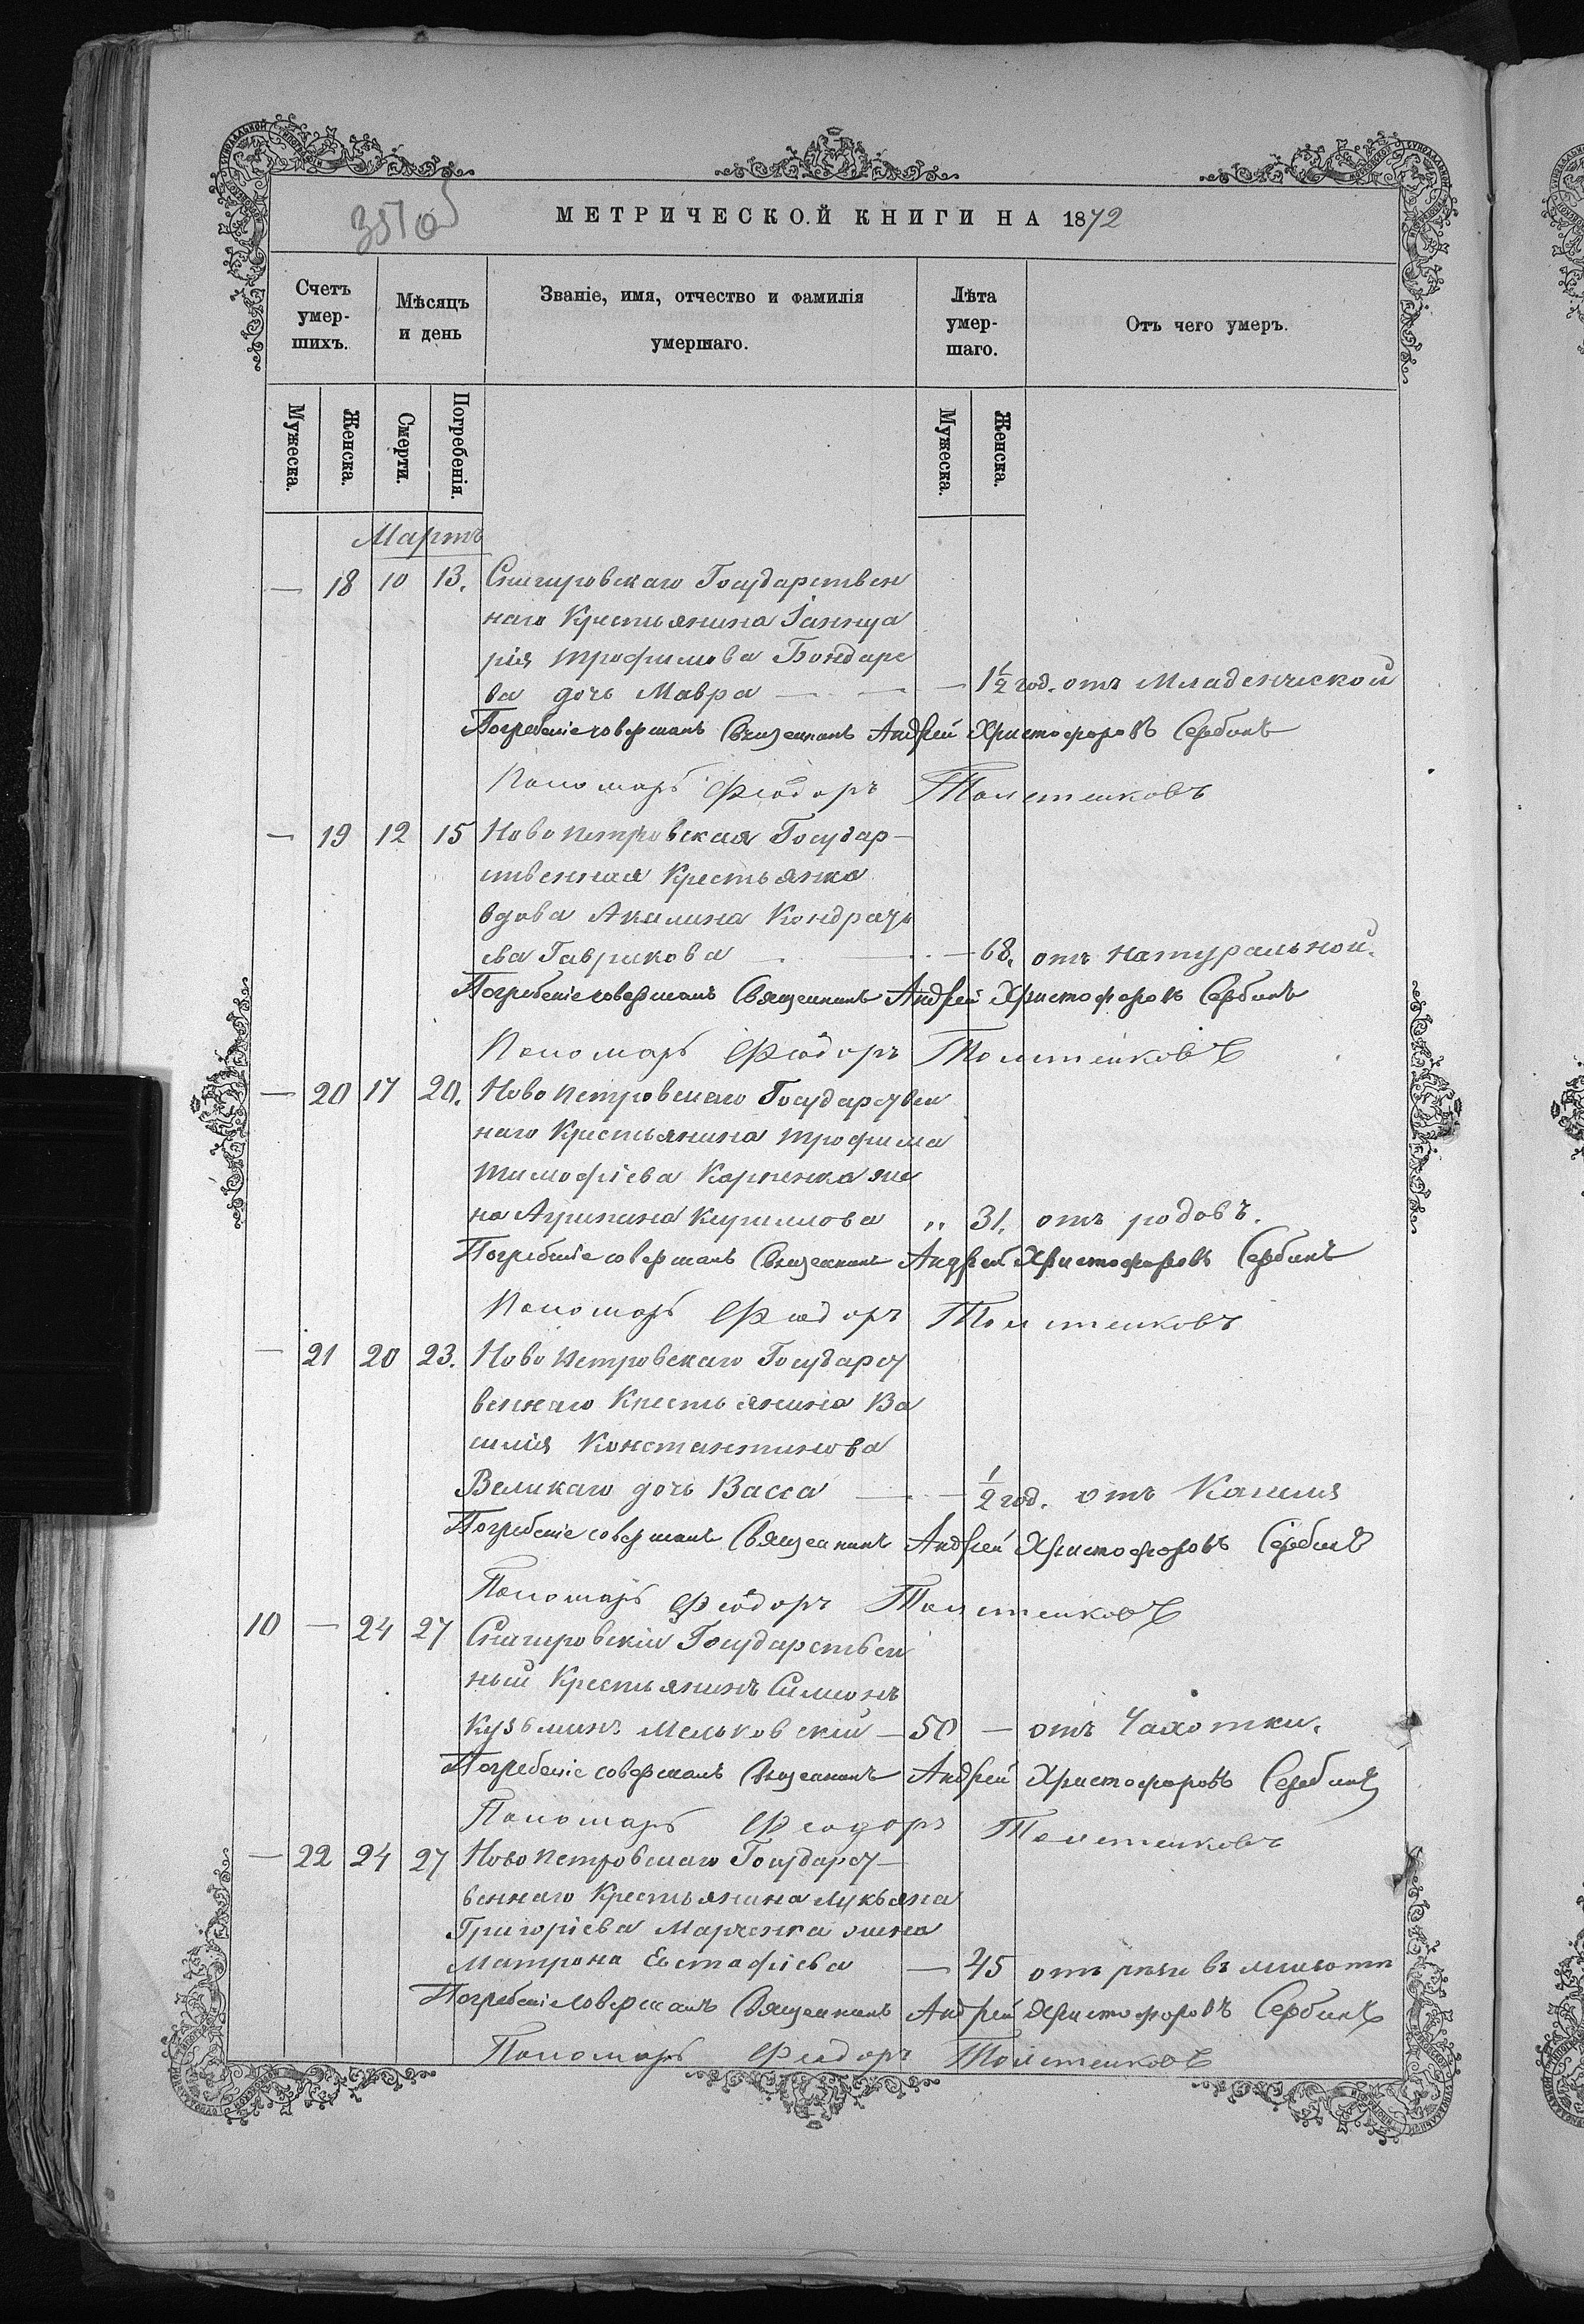 МЕТРИЧЕСКОЙ КНИГИ НА 1872
Счетъ умер-шихъ.
Мѣсяцъ и день
Званіе, имя, отчество и фамилія умершаго.
Лѣта умер-шаго.
Отъ чего умеръ.
Мужеска. Женска. Смерти. Погребенія. Мужеска. Женска.
Мартъ
— 18 10 13. Снигировскаго Государствен
наго Крестьянина Іаннуа
рія Трофимова Бондаре
ва дочь Мавра — — — 1½ год. отъ Младенческой
Погребеніе совершалъ Священникъ Андрей Христофоровъ Сербинъ
Пономарь Феодоръ
— 19 12 15 Ново Петровская Государ-
ственная Крестьянка
вдова Акилина Кондрать
ева Гаврикова — — 68. отъ натуральной.
Погребеніе совершалъ Священникъ Андрей Христофоровъ Сербинъ
Пономарь Феодоръ
— 20 17 20. Ново Петровскаго Государствен
наго Крестьянина Трофима
Тимофіева Карпенка же
на Агрипина Кирилова „ 31. отъ родовъ.
Погребеніе совершалъ Священникъ Андрей Христофоровъ Сербинъ
Пономарь Феодоръ
— 21 20 23. Ново Петровскаго Государст
веннаго Крестьянина Ва
силія Константинова
Великаго дочь Васса — — ½ год. отъ Кашля
Погребеніе совершалъ Священникъ Андрей Христофоровъ Сербинъ
Пономарь Феодоръ
10 — 24 27 Снигировскій Государствен
ный Крестьянинъ Симеонъ
Кузьминъ Мельковскій — 50 — отъ Чахотки.
Погребеніе совершалъ Священникъ Андрей Христофоровъ Сербинъ
Пономарь Феодоръ
— 22 24 27 Ново Петровскаго Государст-
веннаго Крестьянина Лукьяна
Григоріева Марченка жена
Матрона Евстафіева — 45 отъ рѣзи въ животѣ
Погребеніе совершалъ Священникъ Андрей Христофоровъ Сербинъ
Пономарь Феодоръ